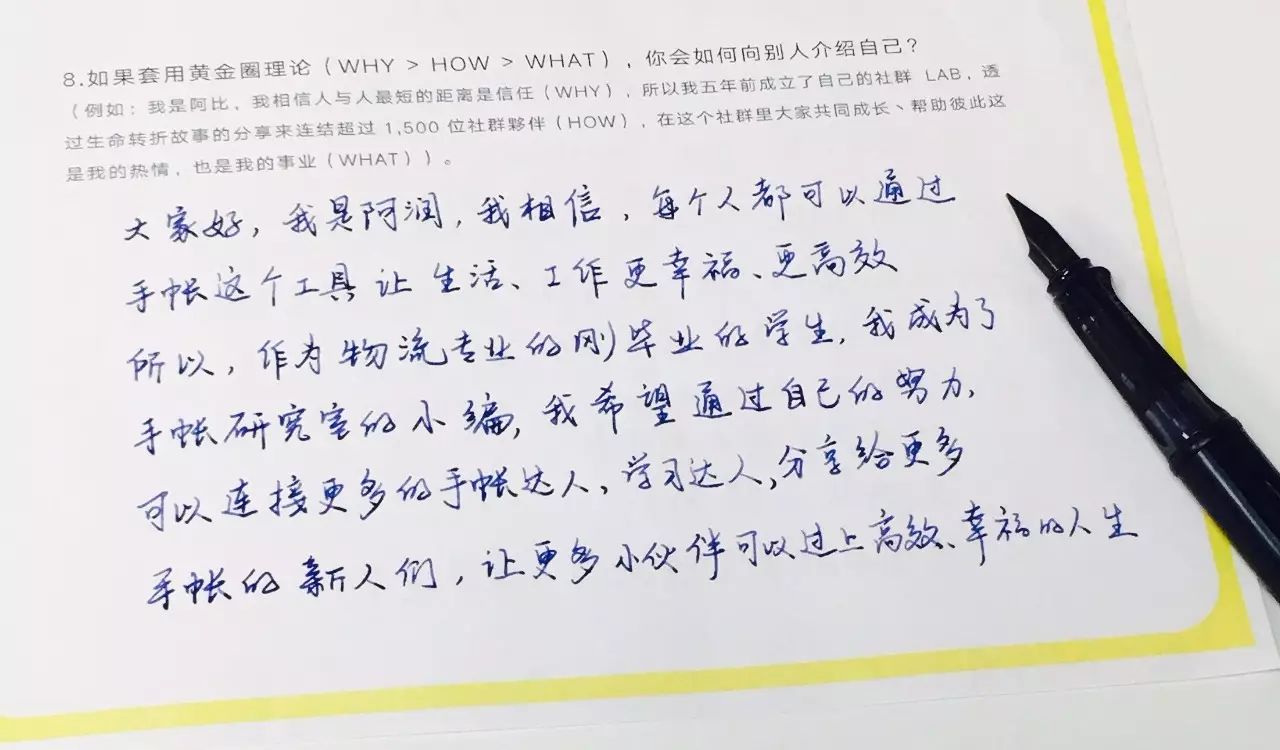 8.如果套用黄金圈理论（WHY > HOW > WHAT），你会如何向别人介绍自己？
（例如：我是阿比，我相信人与人最短的距离是信任（WHY），所以我五年前成立了自己的社群 LAB，透
过生命转折故事的分享来连结超过 1,500 位社群夥伴（HOW），在这个社群里大家共同成长、帮助彼此这
是我的热情，也是我的事业（WHAT））。
大家好，我是阿润，我相信，每个人都可以通过
手帐这个工具让生活、工作更幸福、更高效
所以，作为物流专业的刚毕业的学生，我成为了
手帐研究室的小编，我希望通过自己的努力，
可以连接更多的手帐达人，学习达人，分享给更多
手帐的新人们，让更多小伙伴可以过上高效、幸福的人生